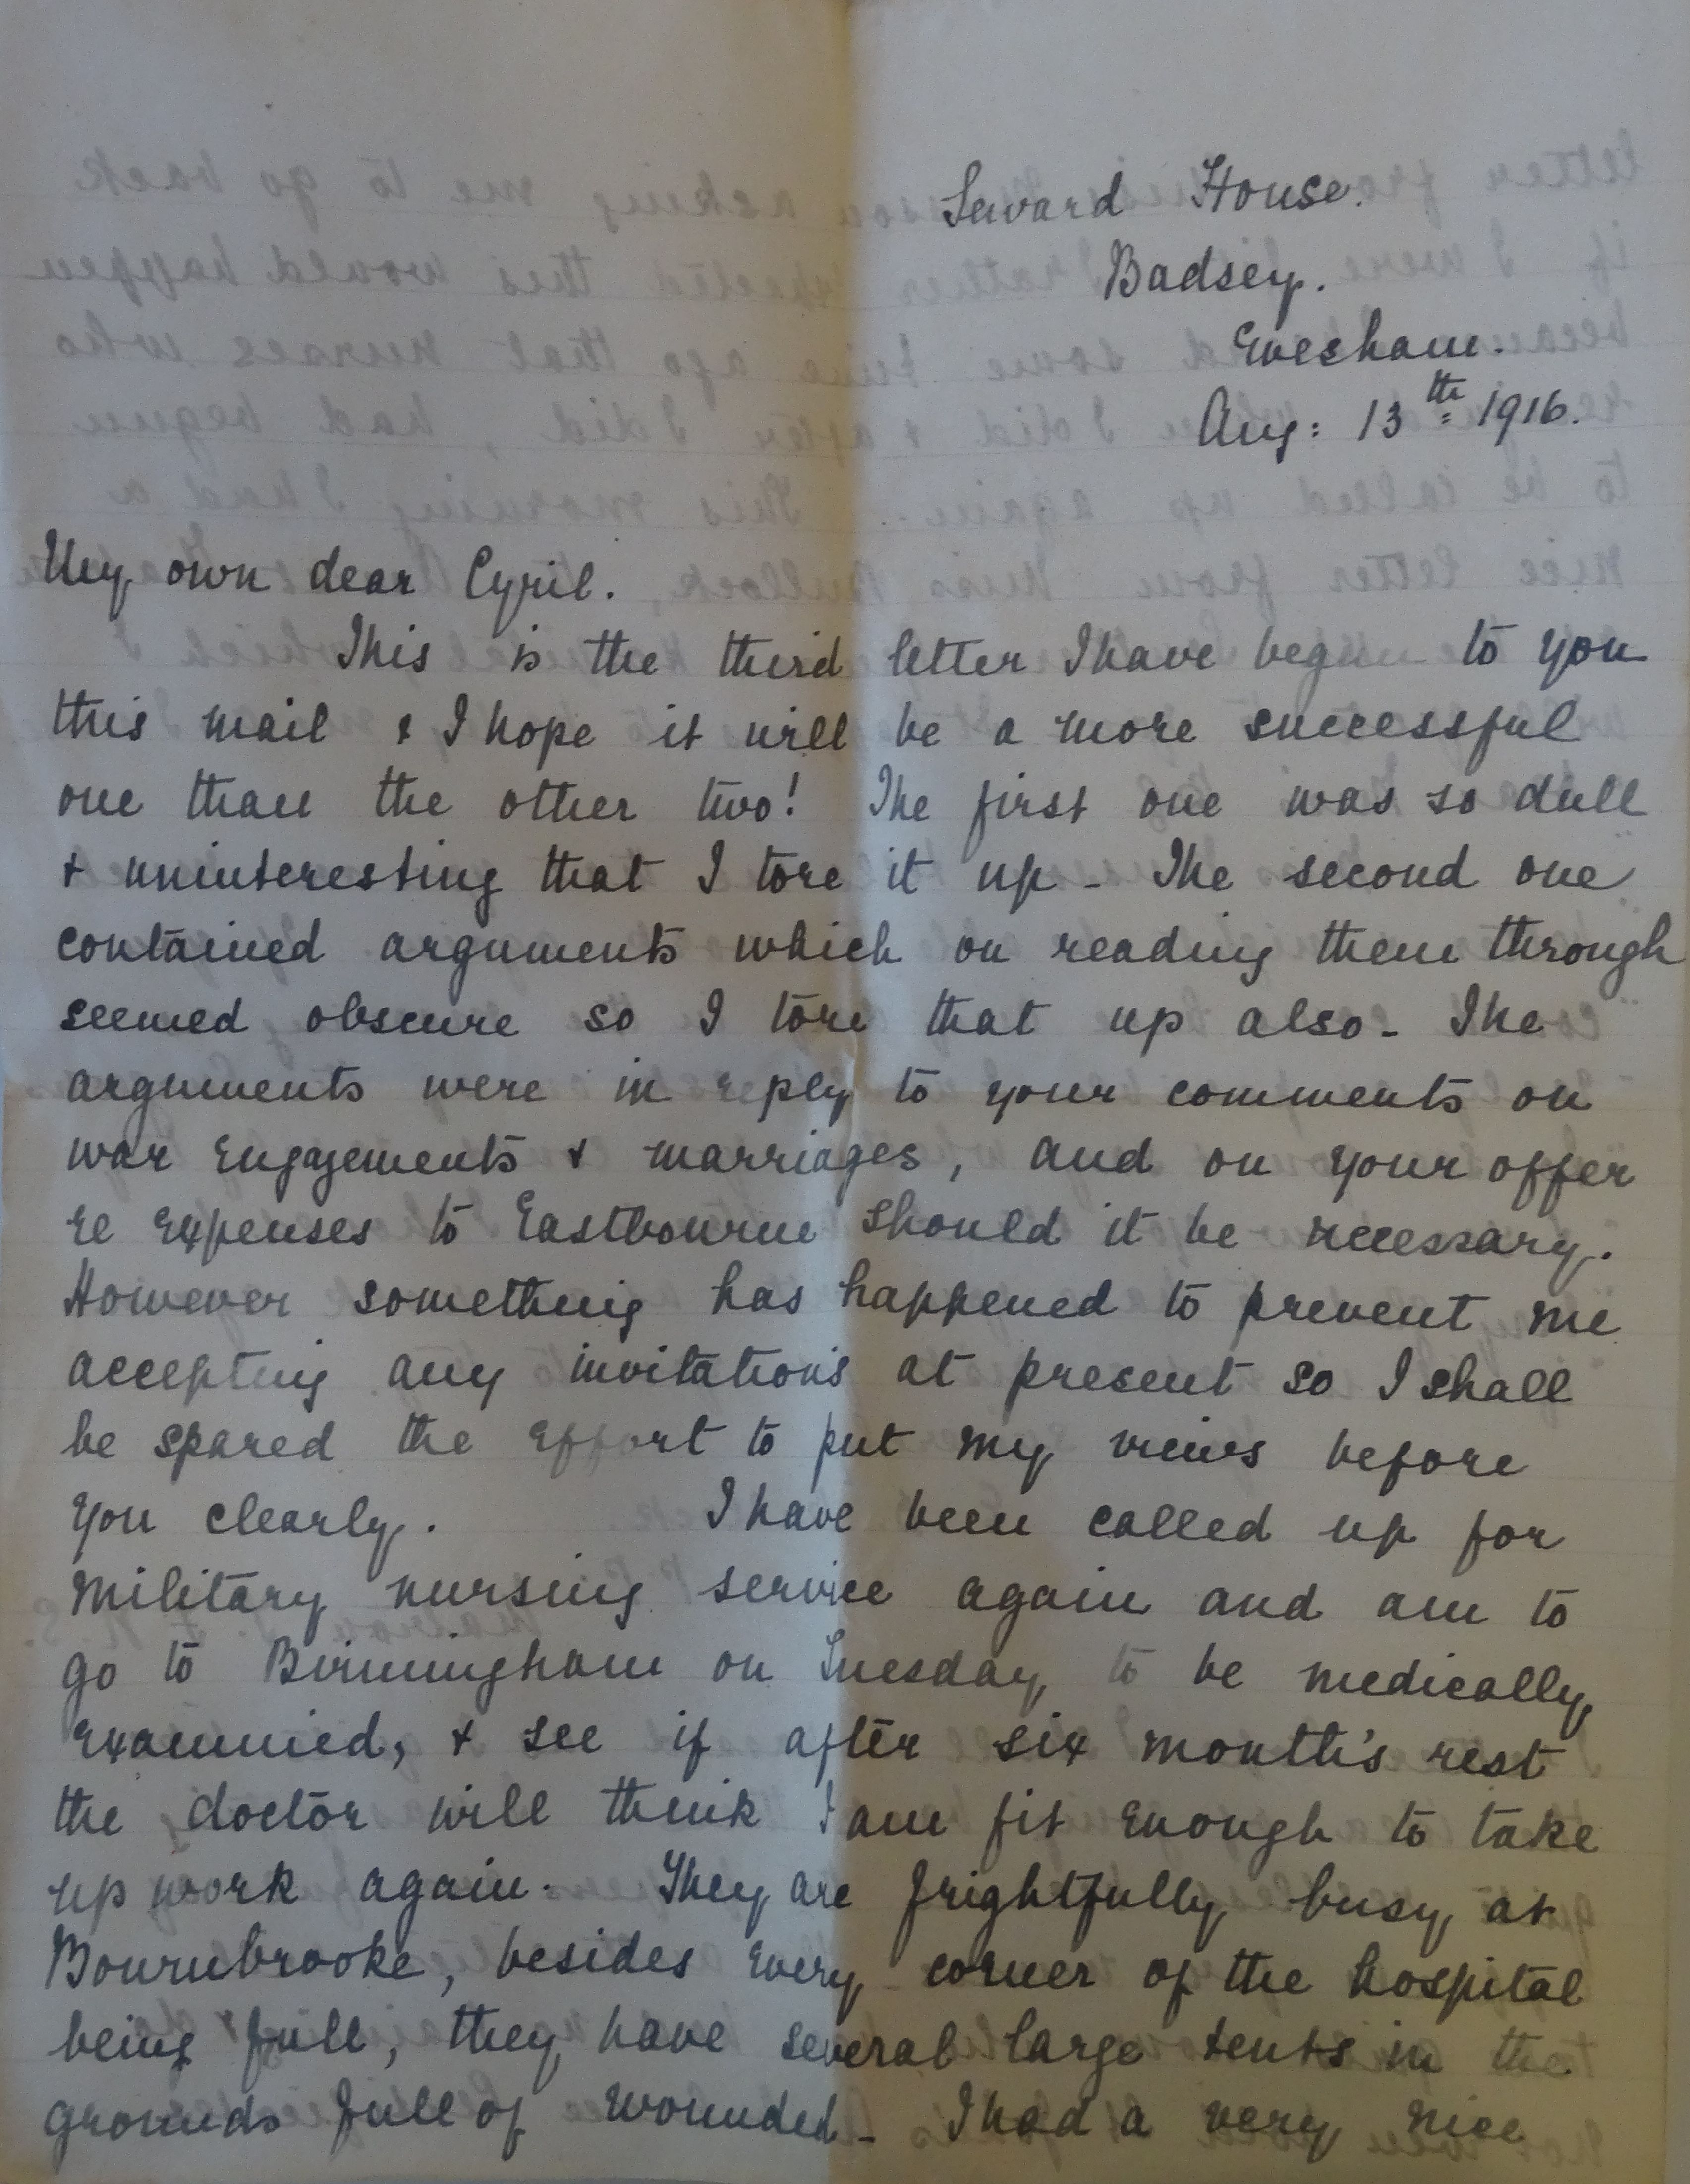 Seward House.
Badsey.
Evesham.
Aug: 13th 1916.
My own dear Cyril.
This is the third letter I have begun to you
this mail & I hope it will be a more successful
one than the other two! The first one was so dull
& uninteresting that I tore it up - The second one
contained arguments which on reading them through
seemed obscure so I tore that up also - The
arguments were in reply to your comments on
war engagements & marriages, and on your offer
re expenses to Eastbourne should it be necessary.
However something has happened to prevent me
accepting any invitations at present so I shall
be spared the effort to put my views before
you clearly. I have been called up for
military nursing service again and am to
go to Birmingham on Tuesday, to be medically
examined, & see if after six month's rest
the doctor will think I am fit enough to take
up work again. They are frightfully busy at
Bournbrooke, besides every corner of the hospital
being full, they have several large tents in the
grounds full of wounded - I had a very nice